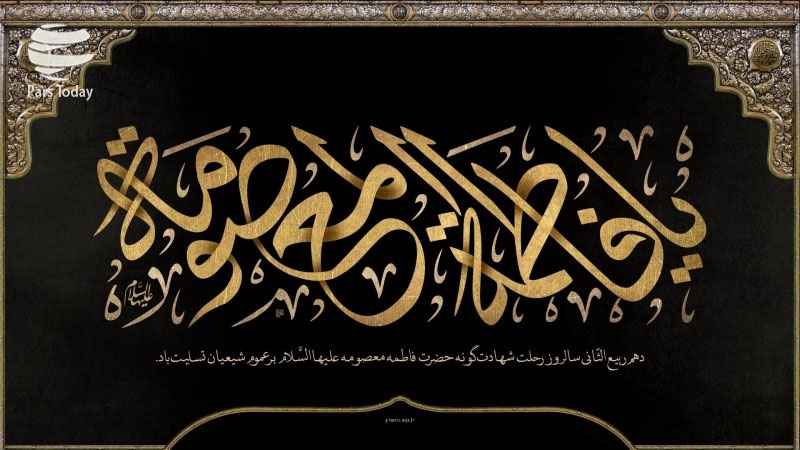 Pars Today
یا فاطمة المعصومة
علیها السلام
دهم ربیع الثانی سالروز رحلت شهادت‌گونه حضرت فاطمه معصومه علیها السَّلام بر عموم شیعیان تسلیت باد.
photo.aqr.ir